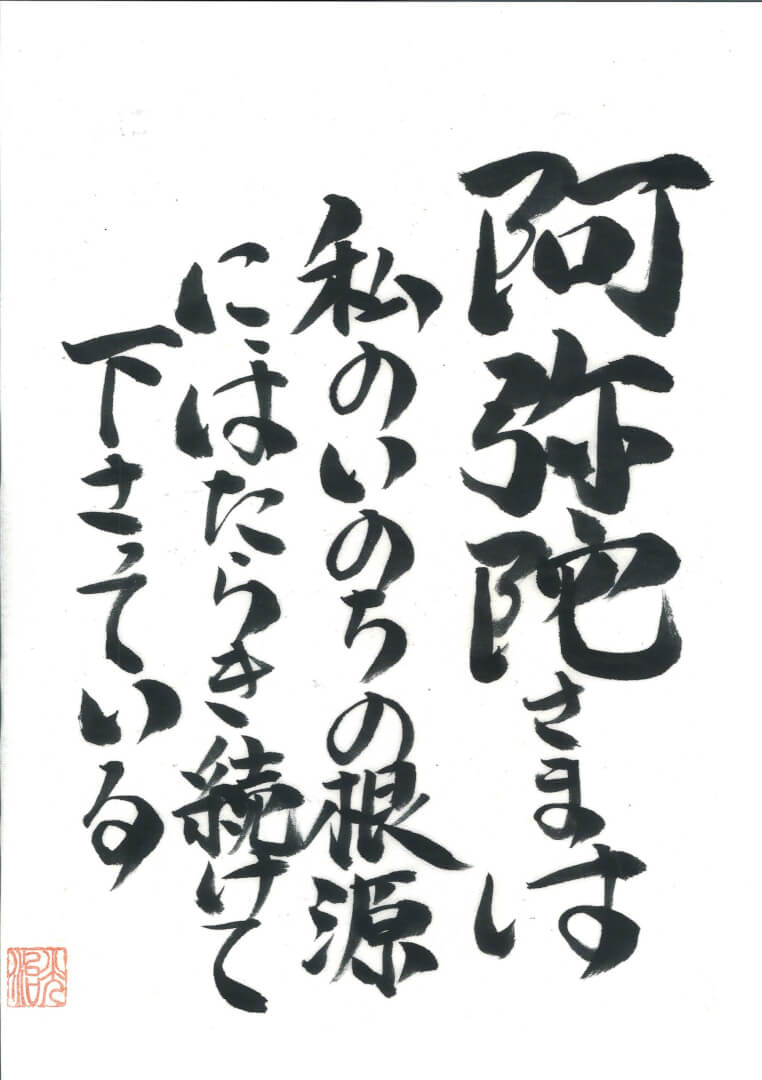 阿弥陀さまは
私のいのちの根源
にはたらき続けて
下さっている